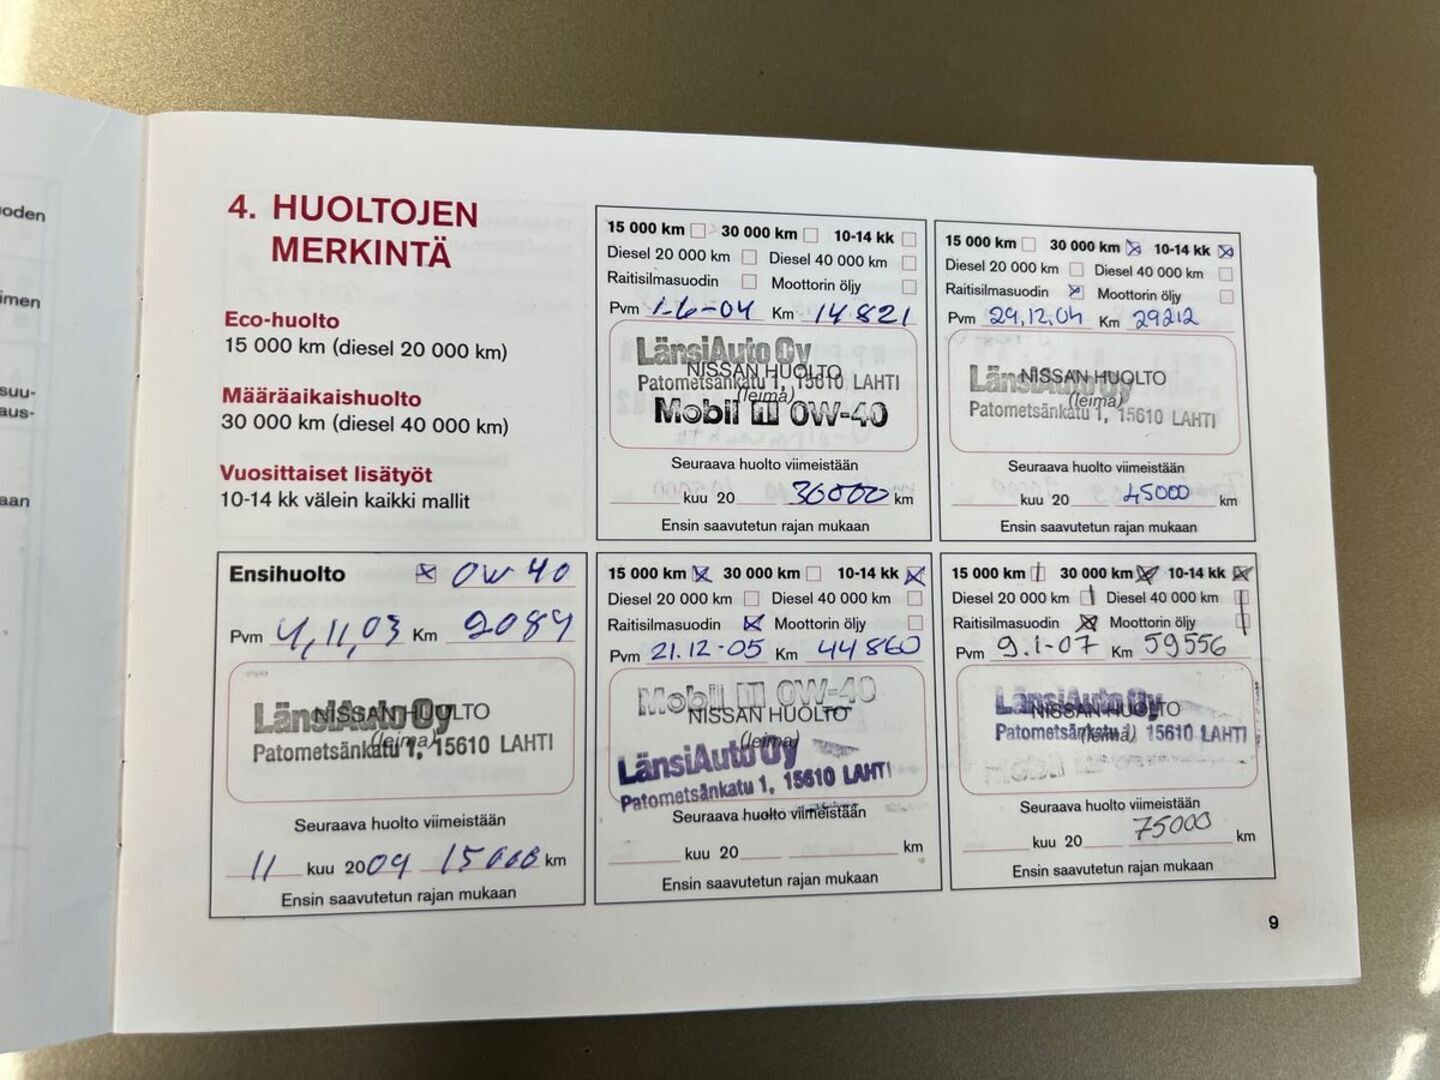 uoden
imen
suu-
aus-
aan
4. HUOLTOJEN
MERKINTÄ
Eco-huolto
15 000 km (diesel 20 000 km)
Määräaikaishuolto
30 000 km (diesel 40 000 km)
Vuosittaiset lisätyöt
10-14 kk välein kaikki mallit
15 000 km 30 000 km 10-14 kk
Diesel 20 000 km Diesel 40 000 km
Raitisilmasuodin Moottorin öljy
Pvm 1-6-04 Km 14821
LänsiAuto Oy
NISSAN HUOLTO
Patometsänkatu 1, 15610 LAHTI
(leima)
Mobil 1 0W-40
Seuraava huolto viimeistään
kuu 20 30000 km
Ensin saavutetun rajan mukaan
15 000 km 30 000 km 10-14 kk
Diesel 20 000 km Diesel 40 000 km
Raitisilmasuodin Moottorin öljy
Pvm 29,12,04 Km 29212
LänsiAuto Oy
NISSAN HUOLTO
(leima)
Patometsänkatu 1, 15610 LAHTI
Seuraava huolto viimeistään
kuu 20 45000 km
Ensin saavutetun rajan mukaan
Ensihuolto 0W 40
Pvm 4,11,03 Km 2084
LänsiAuto Oy
NISSAN HUOLTO
(leima)
Patometsänkatu 1, 15610 LAHTI
Seuraava huolto viimeistään
11 kuu 2004 15000 km
Ensin saavutetun rajan mukaan
15 000 km 30 000 km 10-14 kk
Diesel 20 000 km Diesel 40 000 km
Raitisilmasuodin Moottorin öljy
Pvm 21.12-05 Km 44860
Mobil 1 0W-40
NISSAN HUOLTO
(leima)
LänsiAuto Oy
Patometsänkatu 1, 15610 LAHTI
Seuraava huolto viimeistään
kuu 20 km
Ensin saavutetun rajan mukaan
15 000 km 30 000 km 10-14 kk
Diesel 20 000 km Diesel 40 000 km
Raitisilmasuodin Moottorin öljy
Pvm 9.1-07 Km 59556
LänsiAuto Oy
NISSAN HUOLTO
Patometsänkatu 1, 15610 LAHTI
(leima)
Mobil 1
Seuraava huolto viimeistään
kuu 20 75000 km
Ensin saavutetun rajan mukaan
9